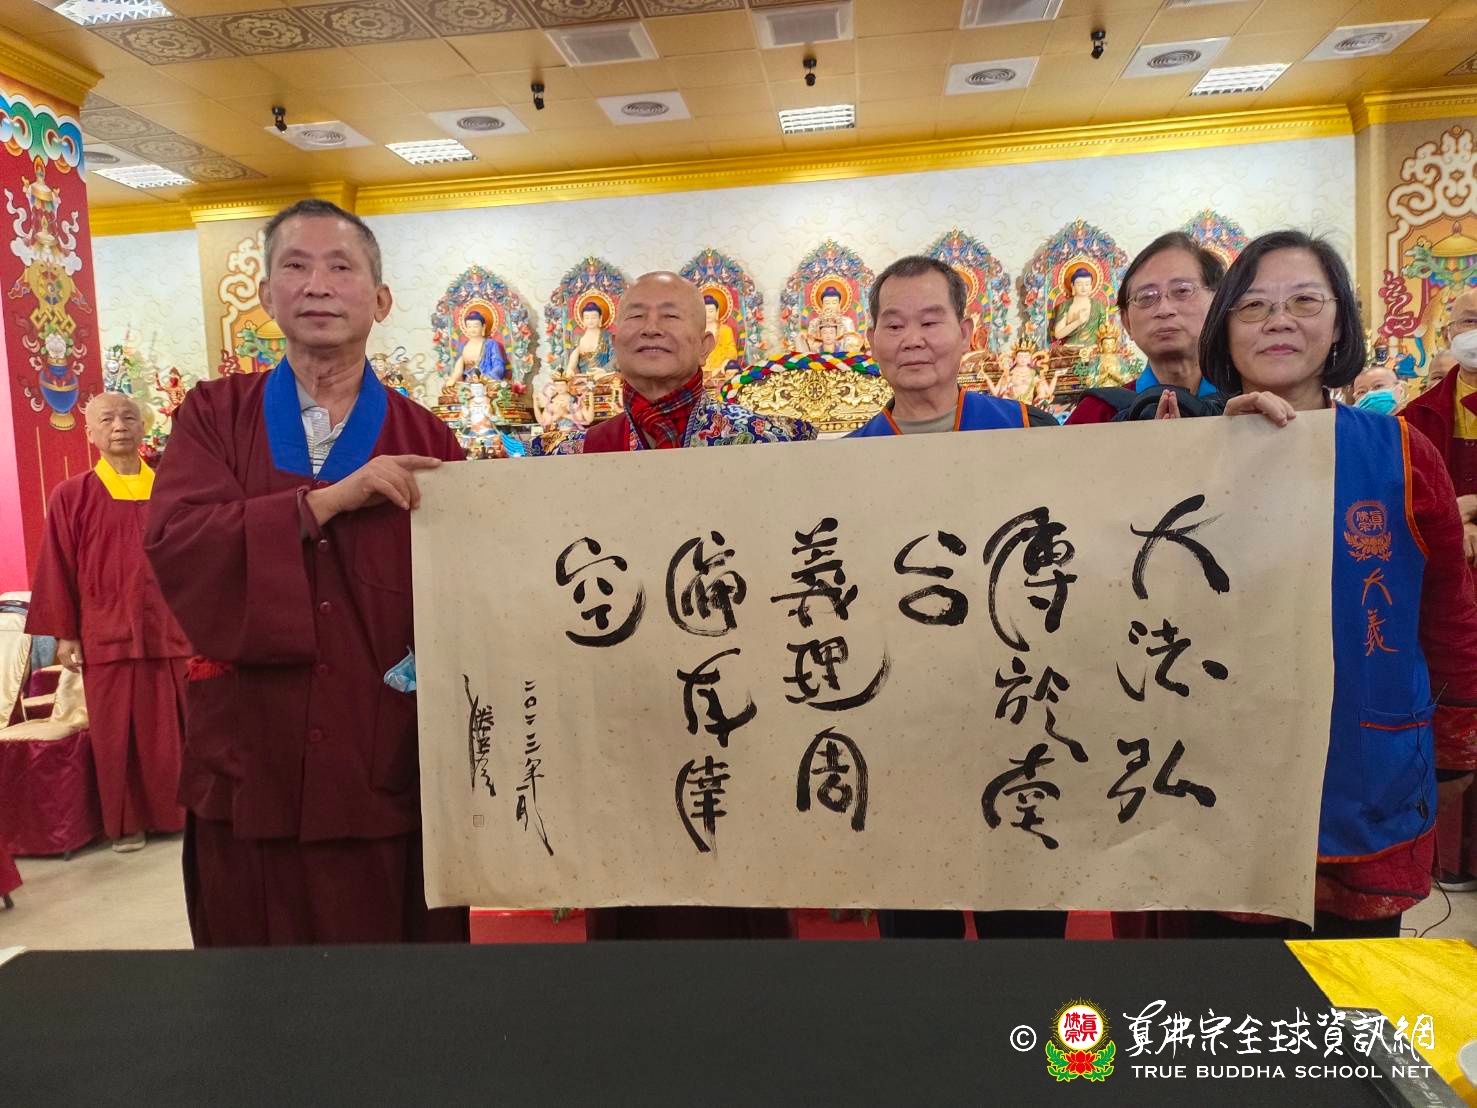 大法弘
傳於南
台
義理周
遍 達
空
二〇二三年一月
勝彥
真佛宗
大義
© 真佛宗 真佛宗全球資訊網
TRUE BUDDHA SCHOOL NET